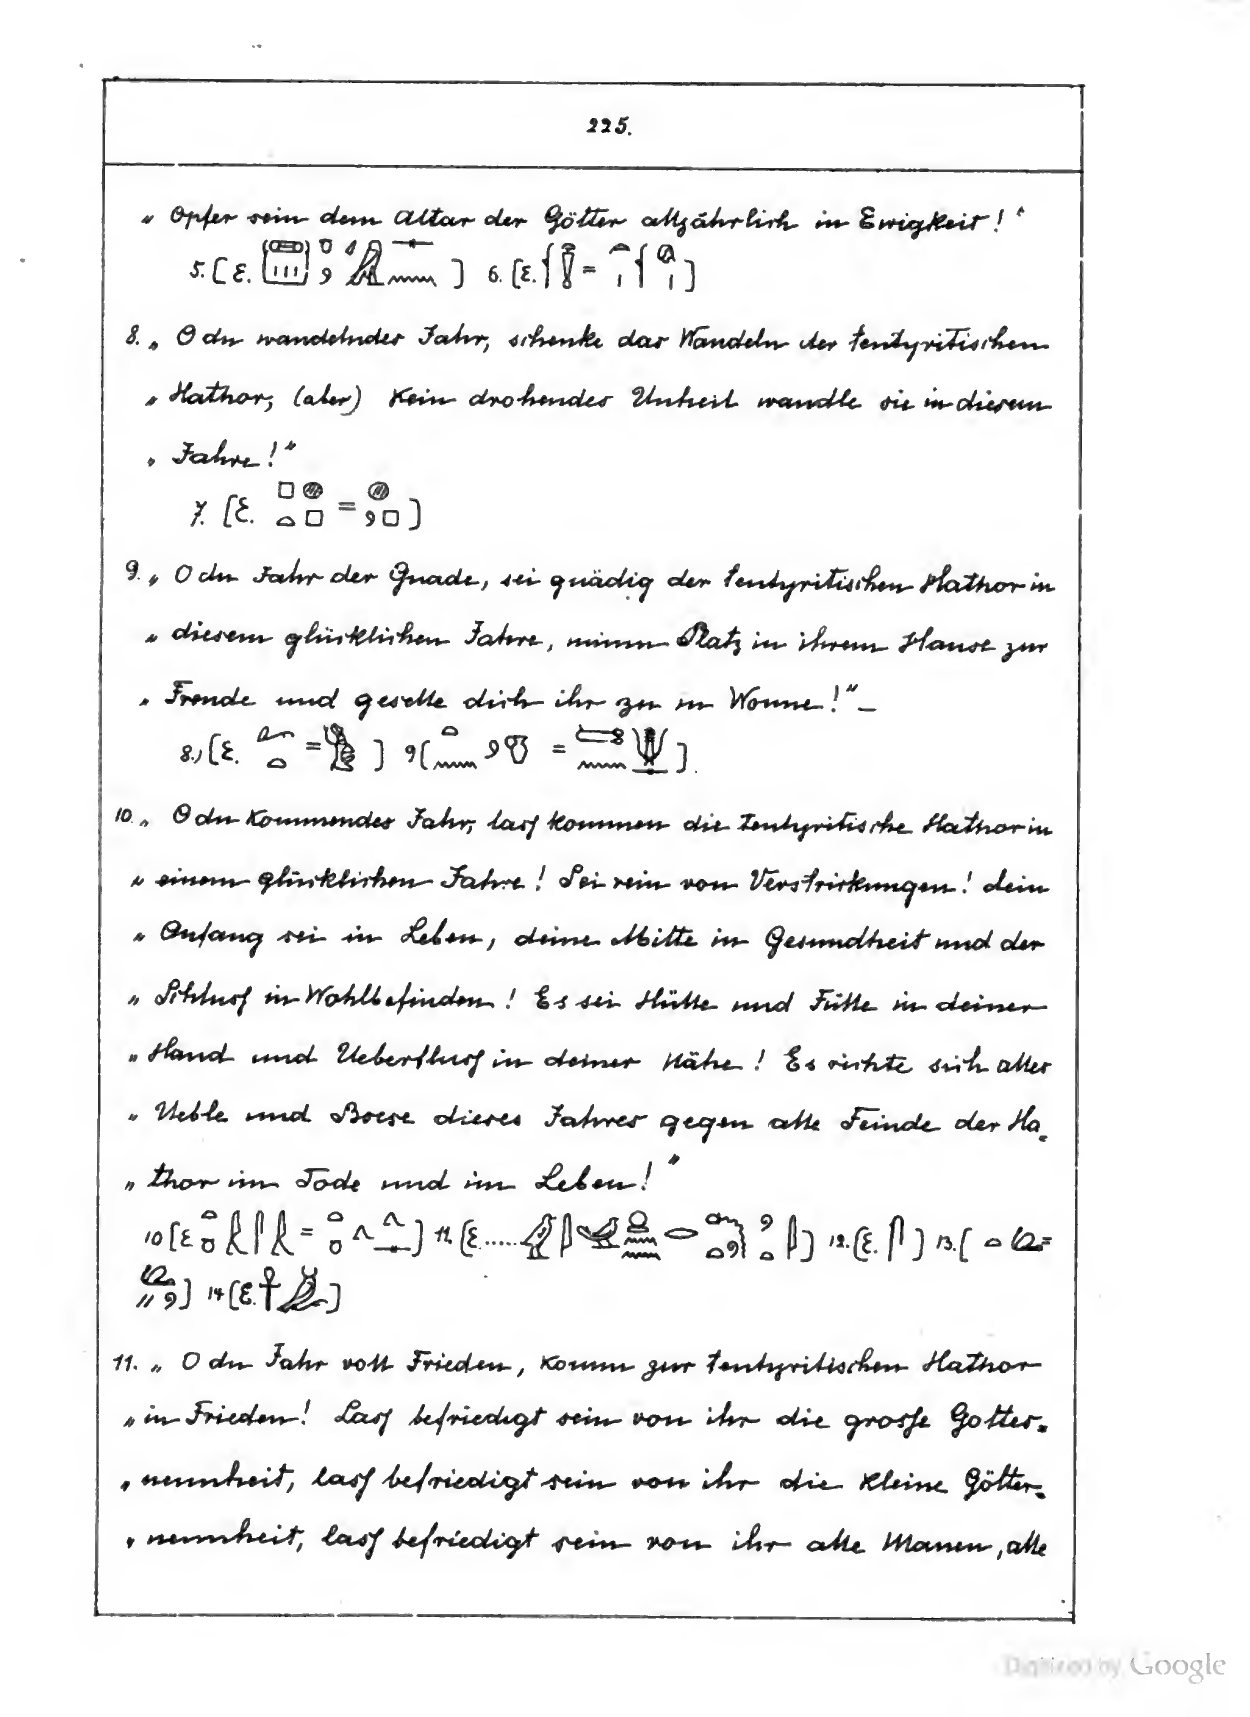 225.
„ Opfer sein dem Altar der Götter alljährlich in Ewigkeit! “
5. [ E. ] 6. [E. = ]
8. „ O du wandelndes Jahr, schenke das Wandeln der tentyritischen
„ Hathor, (aber) kein drohendes Unheil wandle sie in diesem
„ Jahre!“
7. [E. = ]
9. „ O du Jahr der Gnade, sei gnädig der tentyritischen Hathor in
„ diesem glücklichen Jahre, nimm Platz in ihrem Hause zur
„ Freude und geselle dich ihr zu in Wonne!“ _
8.) [E. = ] 9 [ = ].
10. „ O du kommendes Jahr, lass kommen die tentyritische Hathor in
„ einem glücklichen Jahre! Sei rein von Verstrickungen! dein
„ Anfang sei in Leben, deine Mitte in Gesundheit und der
„ Schluss in Wohlbefinden! Es sei Hülle und Fülle in deiner
„ Hand und Ueberfluss in deiner Nähe! Es richte sich alles
„ Ueble und Boese dieses Jahres gegen alle Feinde der Ha-
„ thor im Tode und im Leben!“
10 [E. = ] 11. [E...... ] 12. [E. ] 13. [ =
] 14 [E. ]
11. „ O du Jahr voll Frieden, komm zur tentyritischen Hathor
„ in Frieden! Lass befriedigt sein von ihr die grosse Götter-
„ neunheit, lass befriedigt sein von ihr die kleine Götter-
„ neunheit, lass befriedigt sein von ihr alle Manen, alle
Digitized by Google